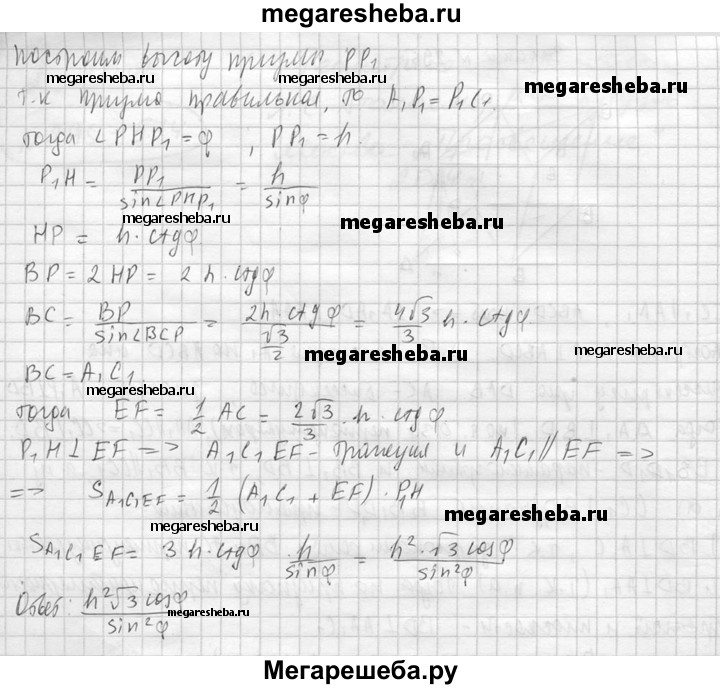 megaresheba.ru
Построим высоту призмы PP₁
megaresheba.ru megaresheba.ru megaresheba.ru
т.к призма правильная, то A₁P₁ = P₁C₁.
тогда ∠PHP₁ = φ , PP₁ = h.
P₁H = PP₁ / sin∠PHP₁ = h / sinφ
megaresheba.ru megaresheba.ru
HP = h·ctgφ
BP = 2HP = 2h·ctgφ
BC = BP / sin∠BCP = 2h·ctgφ / (√3/2) = 4√3/3 h·ctgφ
megaresheba.ru megaresheba.ru
BC = A₁C₁
megaresheba.ru
тогда EF = 1/2 AC = 2√3/3 · h·ctgφ
P₁H ⊥ EF => A₁C₁EF - трапеция и A₁C₁ // EF =>
=> S A₁C₁EF = 1/2 (A₁C₁ + EF) · P₁H
megaresheba.ru megaresheba.ru
S A₁C₁EF = 3h·ctgφ · h / sinφ = h²·√3cosφ / sin²φ
Ответ: h²√3cosφ / sin²φ
megaresheba.ru
Мегарешеба.ру